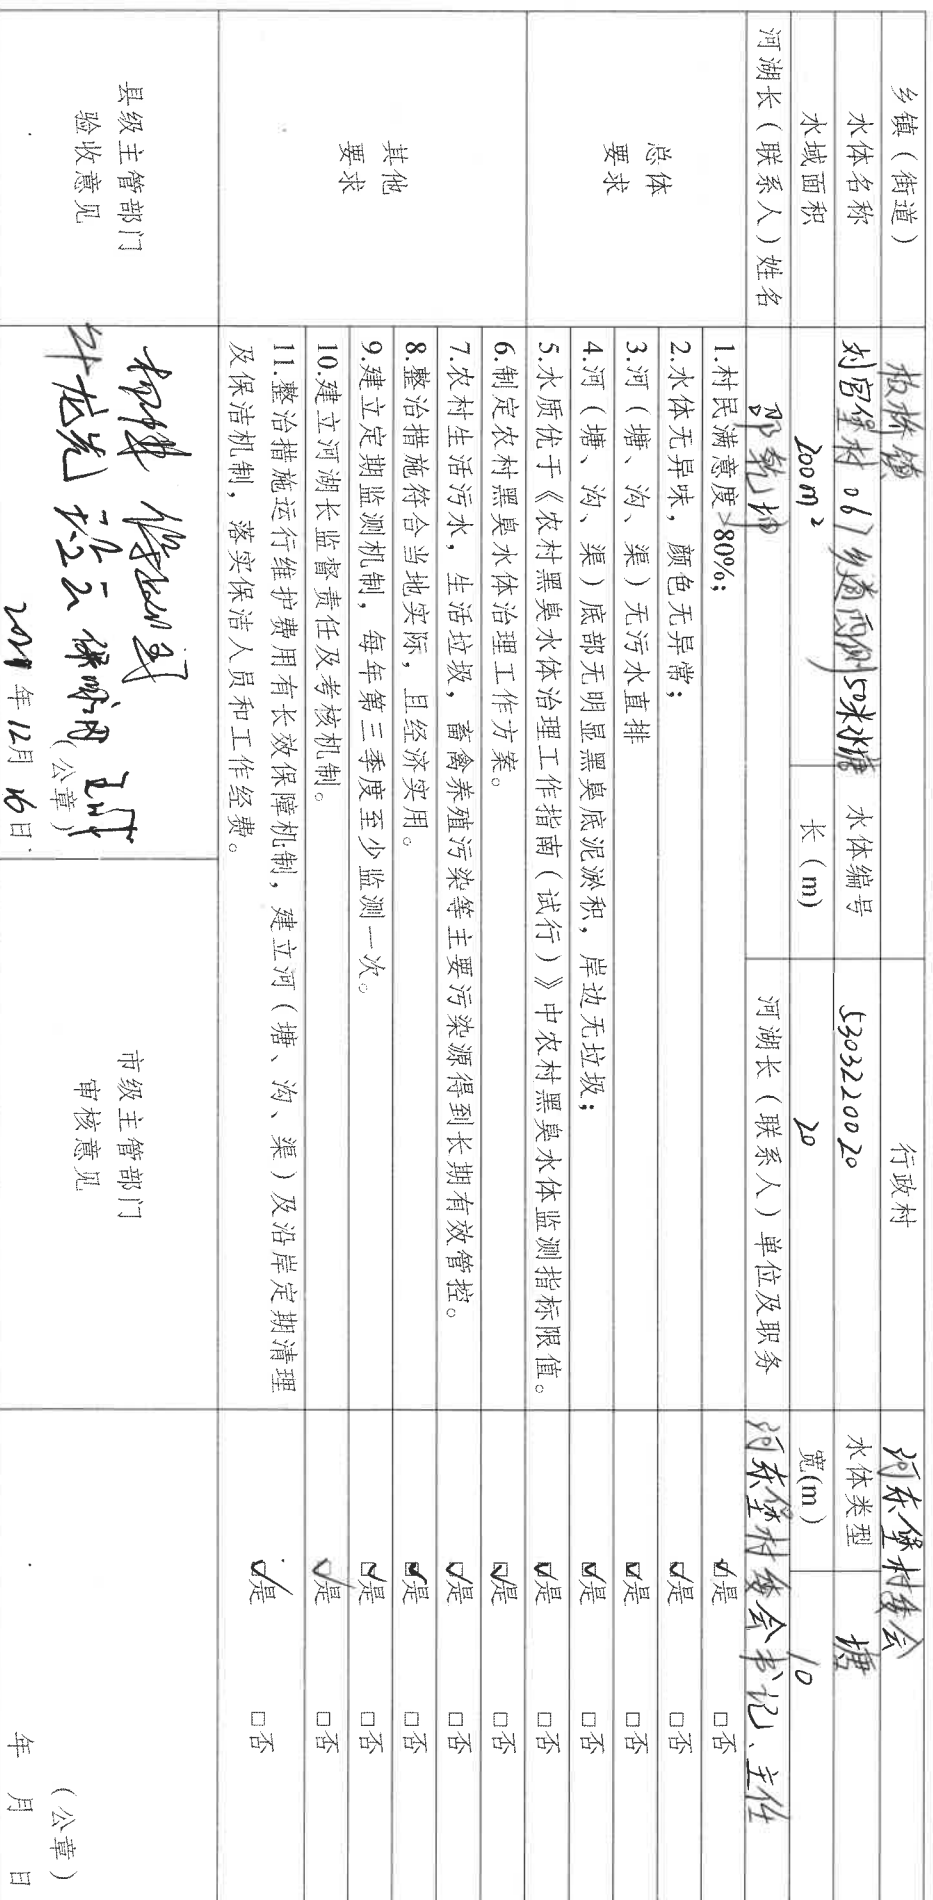 乡镇（街道） 板桥镇 行政村 河东堡村委会
水体名称 刘官堡村067乡道西侧50米水塘 水体编号 5303220020 水体类型 塘
水域面积 200m² 长（m） 20 宽(m) 10
河湖长（联系人）姓名 河湖长（联系人）单位及职务 河东堡村委会书记、主任
总体
要求
1.村民满意度>80%； ☑是 □否
2.水体无异味，颜色无异常； ☑是 □否
3.河（塘、沟、渠）无污水直排 ☑是 □否
4.河（塘、沟、渠）底部无明显黑臭底泥淤积，岸边无垃圾； ☑是 □否
5.水质优于《农村黑臭水体治理工作指南（试行）》中农村黑臭水体监测指标限值。 ☑是 □否
其他
要求
6.制定农村黑臭水体治理工作方案。 ☑是 □否
7.农村生活污水，生活垃圾，畜禽养殖污染等主要污染源得到长期有效管控。 ☑是 □否
8.整治措施符合当地实际，且经济实用。 ☑是 □否
9.建立定期监测机制，每年第三季度至少监测一次。 ☑是 □否
10.建立河湖长监督责任及考核机制。 ☑是 □否
11.整治措施运行维护费用有长效保障机制，建立河（塘、沟、渠）及沿岸定期清理
及保洁机制，落实保洁人员和工作经费。 ☑是 □否
县级主管部门
验收意见
（公章）
年12月16日
市级主管部门
审核意见
（公章）
年 月 日